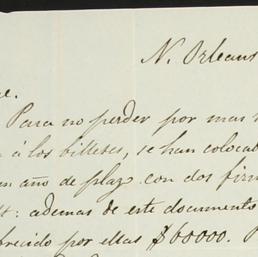 N. Orleans
Para no perder por mas
á los billetes, se han coloca
un año de plazo con dos fir
: ademas de este documento
frecido por ellas $60000.